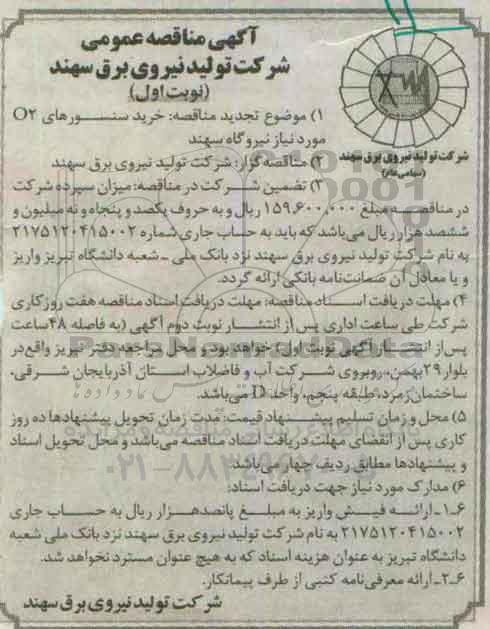 آگهی مناقصه عمومی
شرکت تولید نیروی برق سهند
(نوبت اول)
شرکت تولید نیروی برق سهند
(سهامی عام)
۱) موضوع تجدید مناقصه: خرید سنسورهای O۲
مورد نیاز نیروگاه سهند
۲) مناقصه گزار: شرکت تولید نیروی برق سهند
۳) تضمین شرکت در مناقصه: میزان سپرده شرکت
در مناقصه مبلغ ۱۵۹،۶۰۰،۰۰۰ ریال و به حروف یکصد و پنجاه و نه میلیون و
ششصد هزار ریال می‌باشد که باید به حساب جاری شماره ۲۱۷۵۱۲۰۴۱۵۰۰۲
به نام شرکت تولید نیروی برق سهند نزد بانک ملی ـ شعبه دانشگاه تبریز واریز
و یا معادل آن ضمانت‌نامه بانکی ارائه گردد.
۴) مهلت دریافت اسناد مناقصه: مهلت دریافت اسناد مناقصه هفت روز کاری
شرکت طی ساعت اداری پس از انتشار نوبت دوم آگهی (به فاصله ۴۸ ساعت
پس از انتشار آگهی نوبت اول) خواهد بود و محل مراجعه دفتر تبریز واقع در
بلوار ۲۹ بهمن، روبروی شرکت آب و فاضلاب استان آذربایجان شرقی،
ساختمان زمرد، طبقه پنجم، واحد D می‌باشد.
۵) محل و زمان تسلیم پیشنهاد قیمت: مدت زمان تحویل پیشنهادها ده روز
کاری پس از انقضای مهلت دریافت اسناد مناقصه می‌باشد و محل تحویل اسناد
و پیشنهادها مطابق ردیف چهار می‌باشد.
۶) مدارک مورد نیاز جهت دریافت اسناد:
۶ـ۱ـ ارائه فیش واریز به مبلغ پانصد هزار ریال به حساب جاری
۲۱۷۵۱۲۰۴۱۵۰۰۲ به نام شرکت تولید نیروی برق سهند نزد بانک ملی شعبه
دانشگاه تبریز به عنوان هزینه اسناد که به هیچ عنوان مسترد نخواهد شد.
۶ـ۲ـ ارائه معرفی‌نامه کتبی از طرف پیمانکار.
شرکت تولید نیروی برق سهند